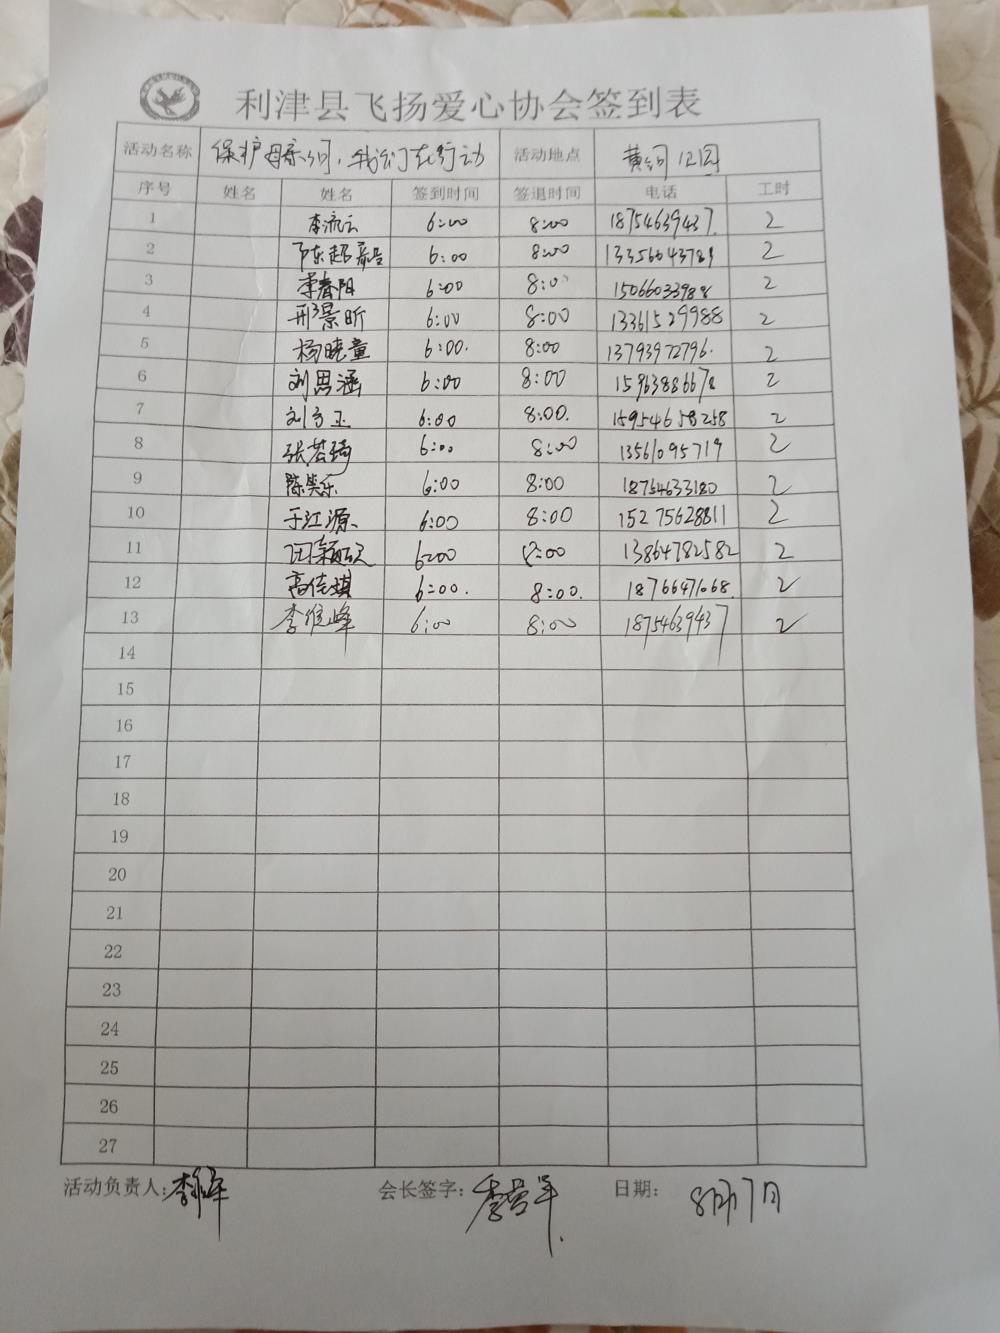 利津县飞扬爱心协会签到表
活动名称 保护母亲河，我们在行动 活动地点 黄河公园
序号 姓名 姓名 签到时间 签退时间 电话 工时
1 李流云 6:00 8:00 18754639437. 2
2 陈超 6:00 8:00 13356043789 2
3 李春阳 6:00 8:00 15066033988 2
4 邢景昕 6:00 8:00 13361529988 2
5 杨晓童 6:00. 8:00 13793972796. 2
6 刘思涵 6:00 8:00 2
7 刘方玉 6:00 8:00. 15954658258 2
8 张若琦 6:00 8:00 13561095719 2
9 陈笑乐 6:00 8:00 18754633180 2
10 于江源 6:00 8:00 15275628811 2
11 6:00 8:00 13864782582 2
12 高佳琪 6:00. 8:00. 18766471068. 2
13 李维峰 6:00 8:00 18754639437 2
14
15
16
17
18
19
20
21
22
23
24
25
26
27
活动负责人: 会长签字: 日期: 8月17日